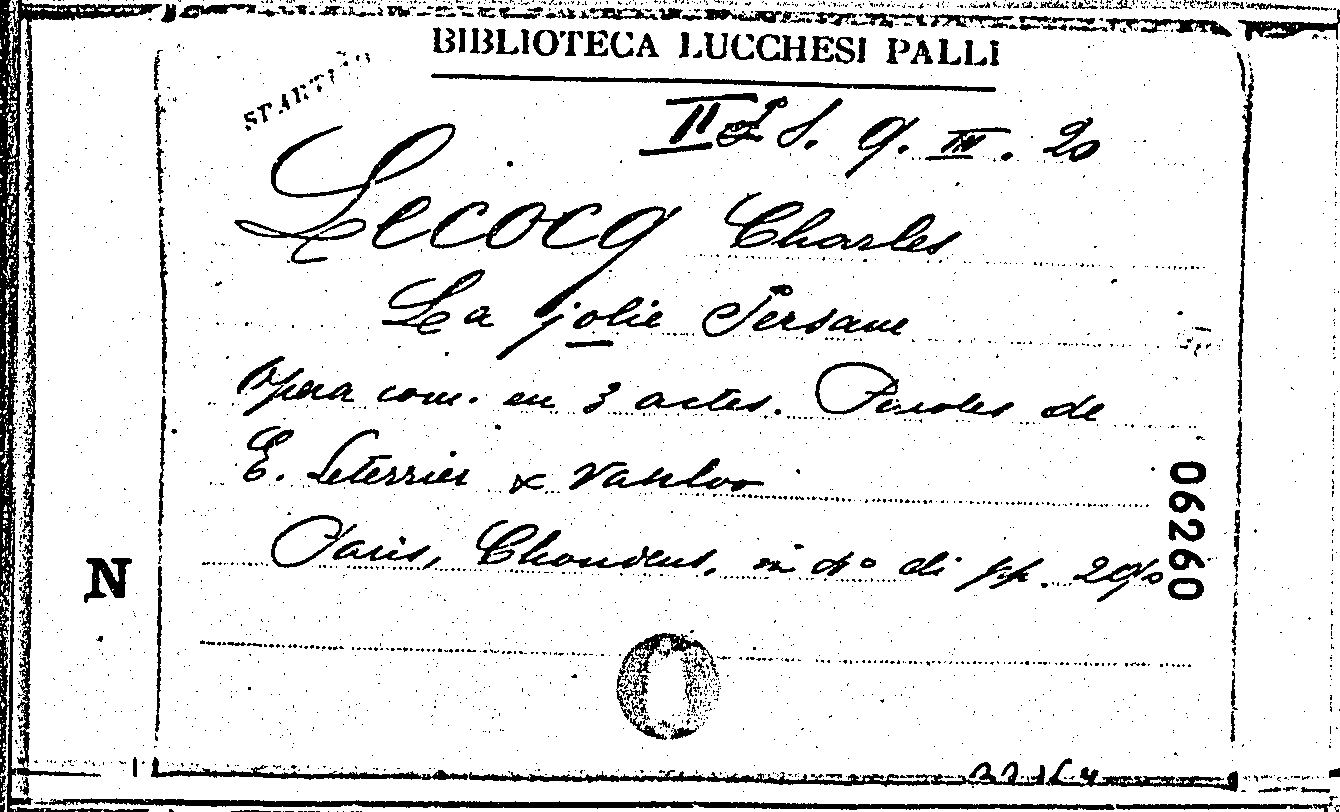 BIBLIOTECA LUCCHESI PALLI
SPARTITO
II L S. 9. III. 20
Lecocq Charles
La jolie Persane
Opera com. en 3 actes. Paroles de
E. Leterrier & Vanloo
Paris, Choudens, in 4º di pp.
06260
N